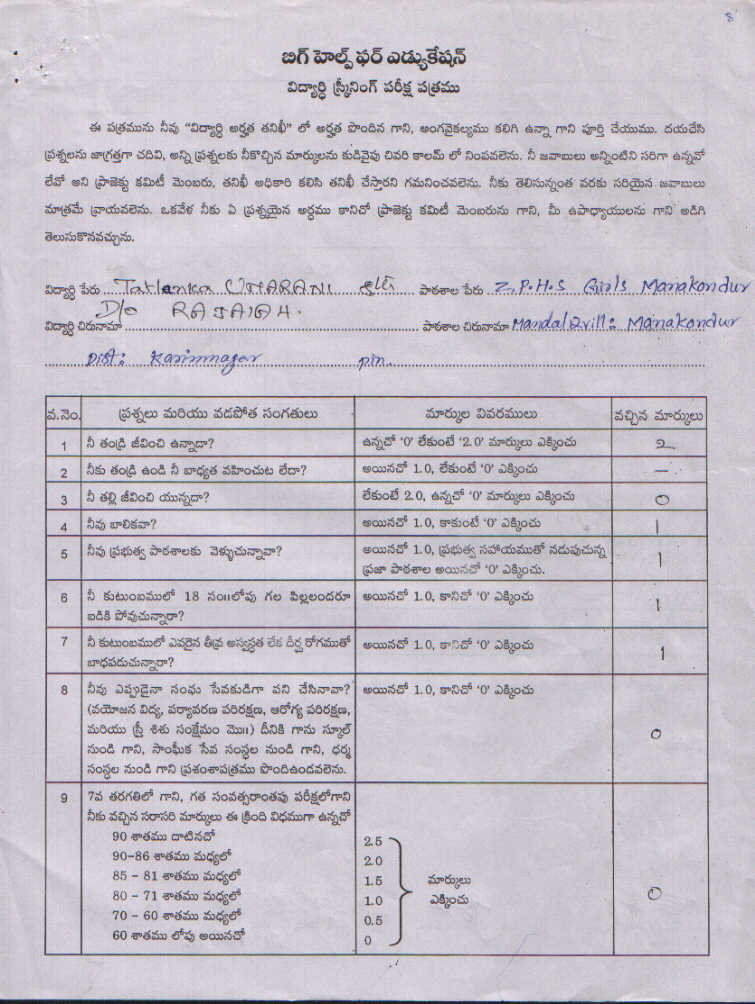 8
బిగ్ హెల్ప్ ఫర్ ఎడ్యుకేషన్
విద్యార్థి స్క్రీనింగ్ పరీక్ష పత్రము
ఈ పత్రమును నీవు "విద్యార్థి అర్హత తనిఖీ" లో అర్హత పొందిన గాని, అంగవైకల్యము కలిగి ఉన్నా గాని పూర్తి చేయుము. దయచేసి
ప్రశ్నలను జాగ్రత్తగా చదివి, అన్ని ప్రశ్నలకు నీకొచ్చిన మార్కులను కుడివైపు చివరి కాలమ్ లో నింపవలెను. నీ జవాబులు అన్నింటిని సరిగా ఉన్నవో
లేవో అని ప్రాజెక్టు కమిటీ మెంబరు, తనిఖీ అధికారి కలిసి తనిఖీ చేస్తారని గమనించవలెను. నీకు తెలిసున్నంత వరకు సరియైన జవాబులు
మాత్రమే వ్రాయవలెను. ఒకవేళ నీకు ఏ ప్రశ్నయైన అర్థము కానిచో ప్రాజెక్టు కమిటీ మెంబరును గాని, మీ ఉపాధ్యాయులను గాని అడిగి
తెలుసుకొనవచ్చును.
విద్యార్థి పేరు Tatlanka UMARANI 8th పాఠశాల పేరు Z.P.H.S Girls Manakondur
D/o RAJAIAH.
విద్యార్థి చిరునామా పాఠశాల చిరునామా Mandal &vill: Manakondur
Dist: Karimnagar pin.
వ.నెం. ప్రశ్నలు మరియు వడపోత సంగతులు మార్కుల వివరములు వచ్చిన మార్కులు
1 నీ తండ్రి జీవించి ఉన్నాడా? ఉన్నచో '0' లేకుంటే '2.0' మార్కులు ఎక్కించు 2
2 నీకు తండ్రి ఉండి నీ బాధ్యత వహించుట లేదా? అయినచో 1.0, లేకుంటే '0' ఎక్కించు –
3 నీ తల్లి జీవించి యున్నదా? లేకుంటే 2.0, ఉన్నచో '0' మార్కులు ఎక్కించు 0
4 నీవు బాలికవా? అయినచో 1.0, కాకుంటే '0' ఎక్కించు 1
5 నీవు ప్రభుత్వ పాఠశాలకు వెళ్ళుచున్నావా? అయినచో 1.0, ప్రభుత్వ సహాయముతో నడుపుచున్న 1
ప్రజా పాఠశాల అయినచో '0' ఎక్కించు.
6 నీ కుటుంబములో 18 సం॥లోపు గల పిల్లలందరూ అయినచో 1.0, కానిచో '0' ఎక్కించు 1
బడికి పోవుచున్నారా?
7 నీ కుటుంబములో ఎవరైన తీవ్ర అస్వస్థత లేక దీర్ఘ రోగముతో అయినచో 1.0, కానిచో '0' ఎక్కించు 1
బాధపడుచున్నారా?
8 నీవు ఎప్పుడైనా సంఘ సేవకుడిగా పని చేసినావా? అయినచో 1.0, కానిచో '0' ఎక్కించు 0
(వయోజన విద్య, పర్యావరణ పరిరక్షణ, ఆరోగ్య పరిరక్షణ,
మరియు స్త్రీ శిశు సంక్షేమం మొ॥) దీనికి గాను స్కూల్
నుండి గాని, సాంఘీక సేవ సంస్థల నుండి గాని, ధర్మ
సంస్థల నుండి గాని ప్రశంశాపత్రము పొందిఉండవలెను.
9 7వ తరగతిలో గాని, గత సంవత్సరాంతపు పరీక్షలోగాని
నీకు వచ్చిన సరాసరి మార్కులు ఈ క్రింది విధముగా ఉన్నచో
90 శాతము దాటినచో 2.5
90-86 శాతము మధ్యలో 2.0
85 - 81 శాతము మధ్యలో 1.5 మార్కులు
80 - 71 శాతము మధ్యలో 1.0 ఎక్కించు 0
70 - 60 శాతము మధ్యలో 0.5
60 శాతము లోపు అయినచో 0